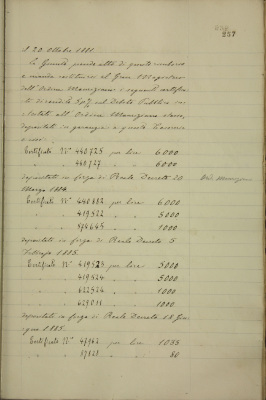 257
il 20. Ottobre 1881.
La Giunta prende atto di questo rimborso
e manda restituirsi al Gran Magistero
dell'Ordine Mauriziano i seguenti certificati
di rendita 5 % sul Debito Pubblico in-
testati all'Ordine Mauriziano stesso,
depositati in garanzia a questa Tesoreria
e cioè:
Certificato N° 480725 per lire 6.000
" " 480727 " " 6000
depositati in forza di Reale Decreto 20
Marzo 1884.
Certificato N° 440882 per lire 6000
" " 419522 " " 5000
" " " " 1000
depositati in forza di Reale Decreto 5
1885.
Certificato N° 419523 per lire 5000
" " 419524 " " 5000
" " 622524 " " 1000
" " " " 1000
depositati in forza di Reale Decreto 18 Giu-
gno 1885.
Certificato N° per lire 1035
" " " " 80